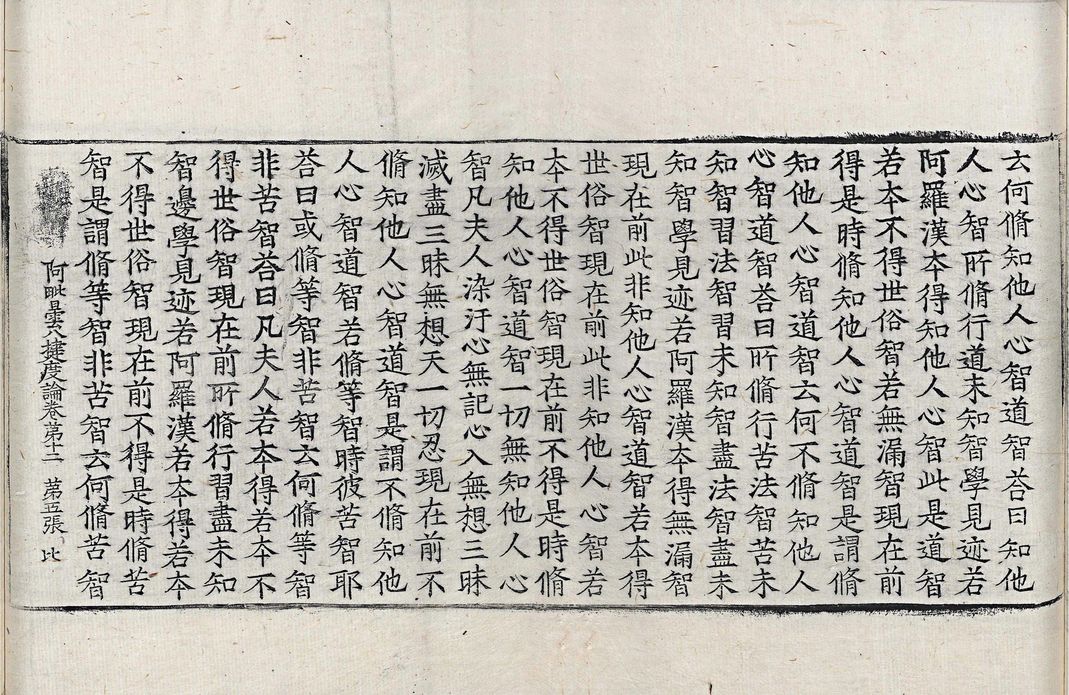 云何脩知他人心智道智荅曰知他
人心智所脩行道未知智學見迹若
阿羅漢夲得知他人心智此是道智
若夲不得世俗智若無漏智現在前
得是時脩知他人心智道智是謂脩
知他人心智道智云何不脩知他人
心智道智荅曰所脩行苦法智苦未
知智習法智習未知智盡法智盡未
知智學見迹若阿羅漢夲得無漏智
現在前此非知他人心智道智若夲得
世俗智現在前此非知他人心智若
夲不得世俗智現在前不得是時脩
知他人心智道智一切無知他人心
智凡夫人染汙心無記心入無想三昧
滅盡三昧無想天一切忍現在前不
脩知他人心智道智是謂不脩知他
人心智道智若脩等智時彼苦智耶
荅曰或脩等智非苦智云何脩等智
非苦智荅曰凡夫人若夲得若夲不
得世俗智現在前所脩行習盡未知
智邊學見迹若阿羅漢若夲得若夲
不得世俗智現在前不得是時脩苦
智是謂脩等智非苦智云何脩苦智
阿毗曇八揵度論卷第十二 第五張 比